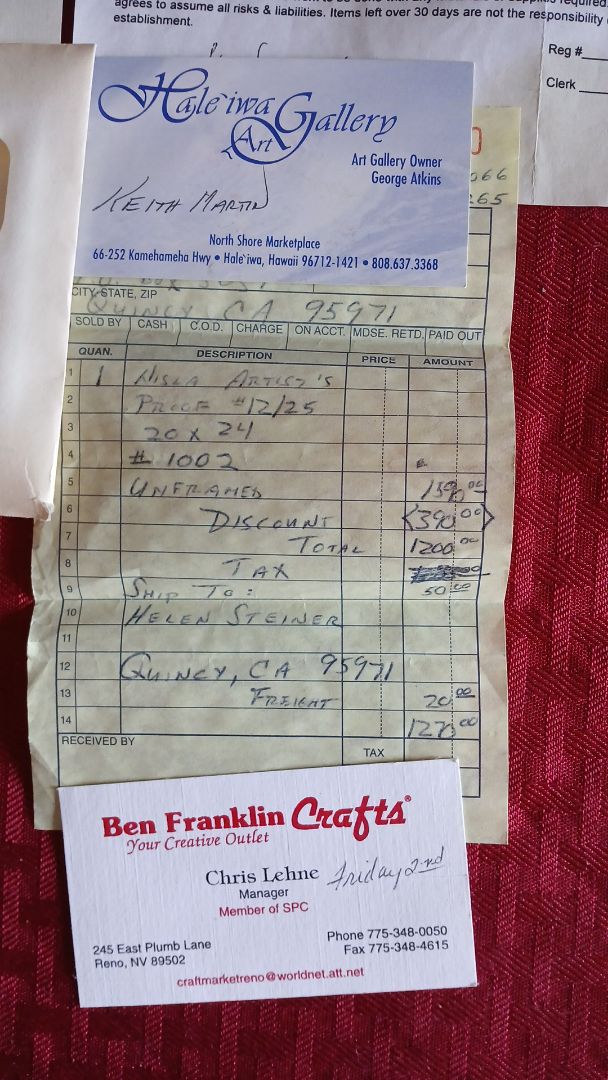 agrees to assume all risks & liabilities. Items left over 30 days are not the responsibility
establishment.
Reg #
Clerk
Hale`iwa
Art
Gallery
Art Gallery Owner
George Atkins
KEITH MARTIN
North Shore Marketplace
66-252 Kamehameha Hwy • Hale`iwa, Hawaii 96712-1421 • 808.637.3368
066
265
CITY, STATE, ZIP
QUINCY CA 95971
SOLD BY CASH C.O.D. CHARGE ON ACCT. MDSE. RETD. PAID OUT
QUAN. DESCRIPTION PRICE AMOUNT
1 1 ARTIST'S
2 PROOF #12/25
3 20 X 24
4 # 1002
5 UNFRAMED 1590.00
6 DISCOUNT <390.00>
7 TOTAL 1200.00
8 TAX
9 SHIP TO: 50.00
10 HELEN STEINER
11
12 QUINCY, CA 95971
13 FREIGHT 20.00
14 1270.00
RECEIVED BY
TAX
Ben Franklin Crafts®
Your Creative Outlet
Chris Lehne Friday 2nd
Manager
Member of SPC
245 East Plumb Lane
Reno, NV 89502
Phone 775-348-0050
Fax 775-348-4615
craftmarketreno@worldnet.att.net